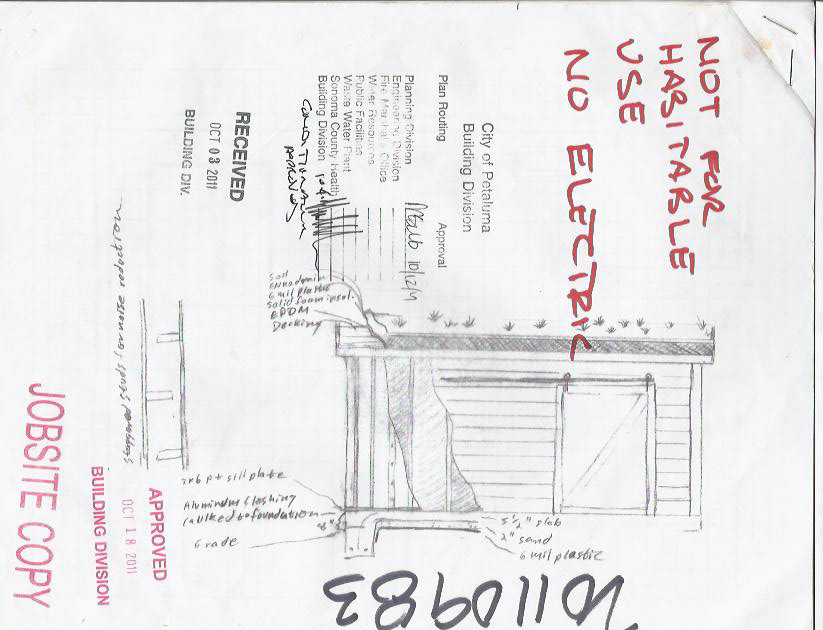 NOT FOR
HABITABLE
USE
NO ELECTRIC
City of Petaluma
Building Division
Plan Routing
Approval
Planning Division
10/12/11
Engineering Division
Fire Marshal's Office
Water Resources
Public Facilities
Waste Water Plant
Sonoma County Health
Building Division
CONDITIONALLY
APPROVED
RECEIVED
OCT 03 2011
BUILDING DIV.
soil
6 mil plastic
solid foam insul.
EPDM
Decking
staggered studs / for noise reduction
2x6 pt sill plate
Aluminum flashing
caulked to foundation
8"
Grade
5 1/2" slab
2" sand
6 mil plastic
APPROVED
OCT 18 2011
BUILDING DIVISION
JOBSITE COPY
20110983